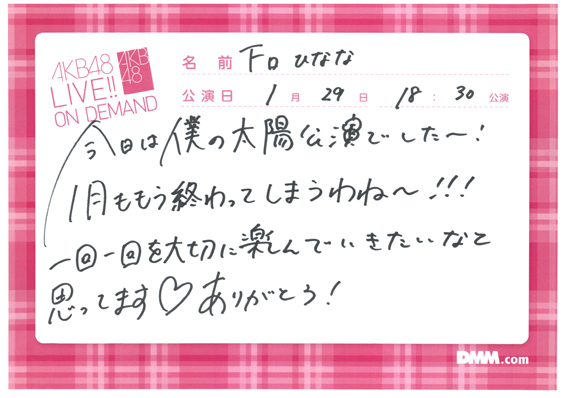 AKB48
LIVE!!
ON DEMAND
AKB
48
名前 下口ひなな
公演日 1月29日 18:30公演
今日は僕の太陽公演でした〜!
1月ももう終わってしまうわね〜!!!
一回一回を大切に楽しんでいきたいなと
思ってます♡ありがとう!
DMM.com